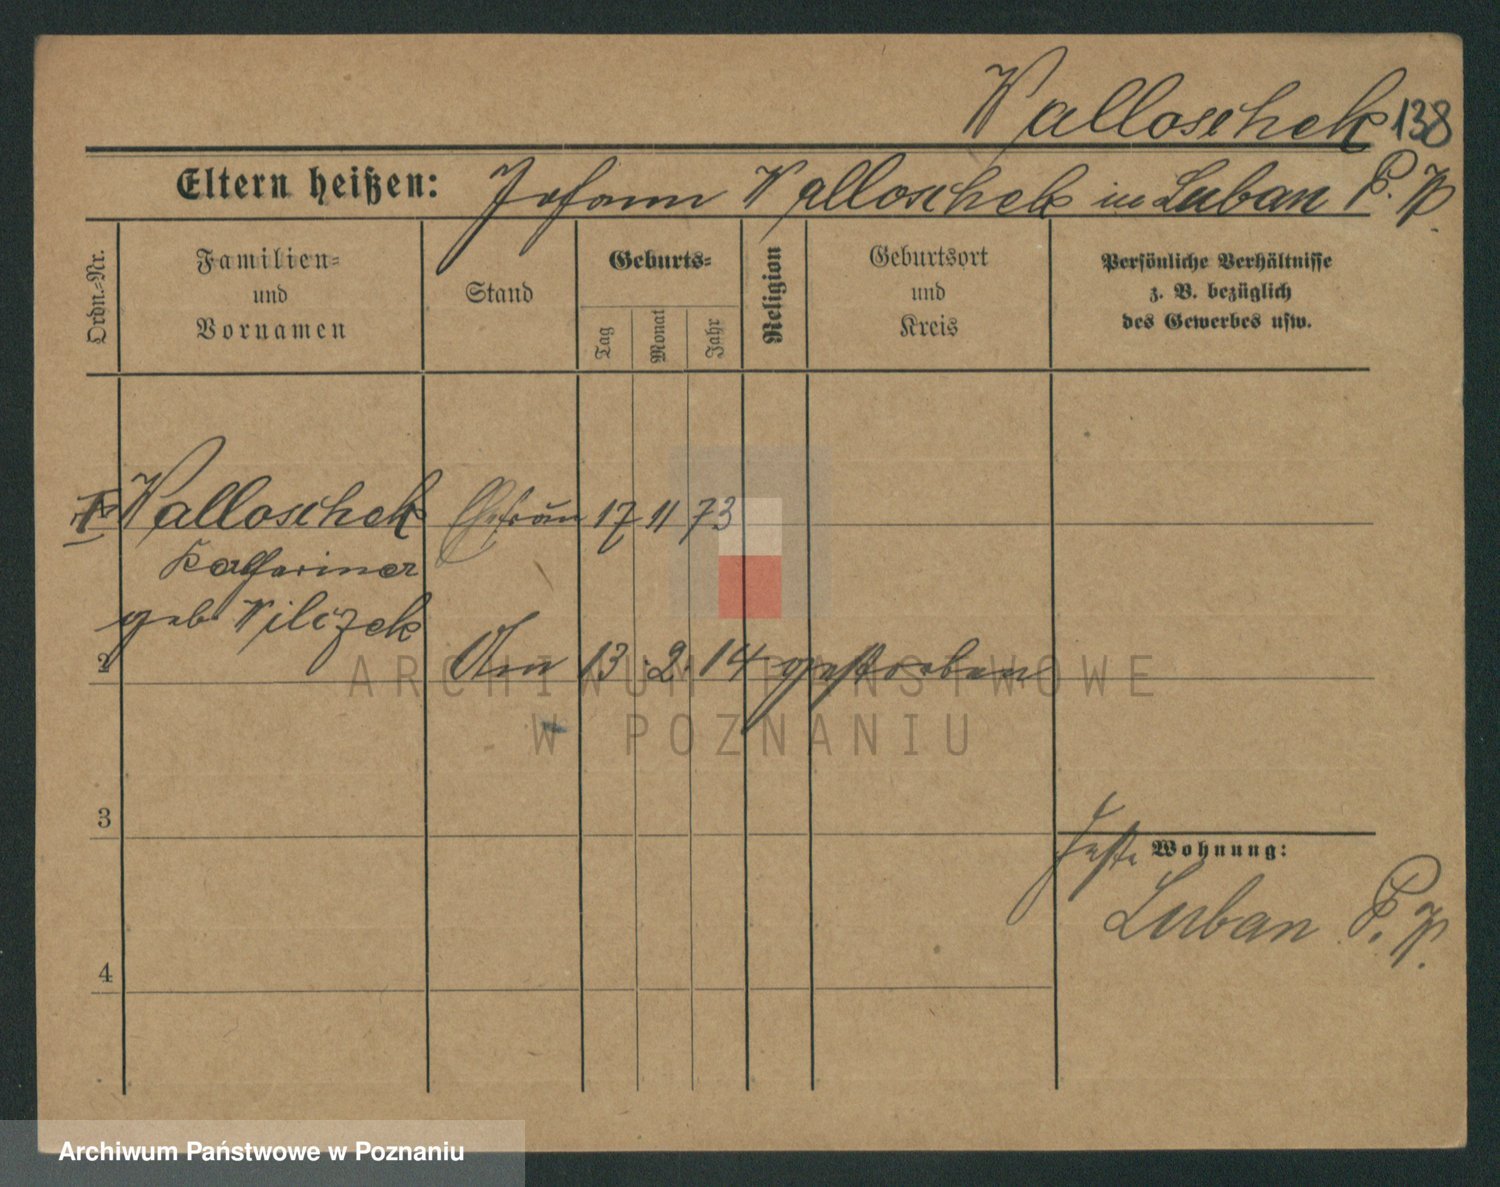 Walloschek 138
Eltern heißen: Johann Walloschek in Luban P. P.
Ordn.-Nr.
Familien-
und
Vornamen
Stand
Geburts-
Tag
Monat
Jahr
Religion
Geburtsort
und
Kreis
Persönliche Verhältnisse
z. B. bezüglich
des Gewerbes usw.
1 Walloschek Ehefrau 17 11 73
Katharina
geb. Wilczek
2 Am 13. 2. 14 gestorben
ARCHIWUM PAŃSTWOWE
W POZNANIU
3
Wohnung:
Luban P. P.
4
Archiwum Państwowe w Poznaniu